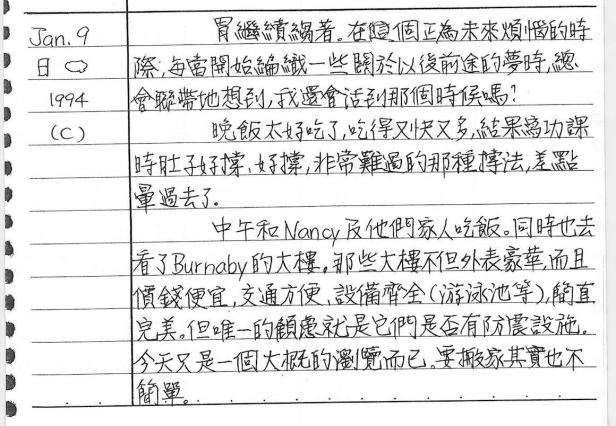 Jan. 9 胃繼續絞著。在這個正為未來煩惱的時
日 際,每當開始編織一些關於以後前途的夢時,總
1994 會聯帶地想到,我還會活到那個時候嗎?
(C) 晚飯太好吃了,吃得又快又多,結果寫功課
時肚子好撐、好撐,非常難過的那種撐法,差點
暈過去了。
中午和Nancy及他們家人吃飯。同時也去
看了Burnaby的大樓。那些大樓不但外表豪華,而且
價錢便宜,交通方便、設備齊全(游泳池等),簡直
完美。但唯一的顧慮就是它們是否有防震設施。
今天又是一個大概的瀏覽而已。要搬家其實也不
簡單。